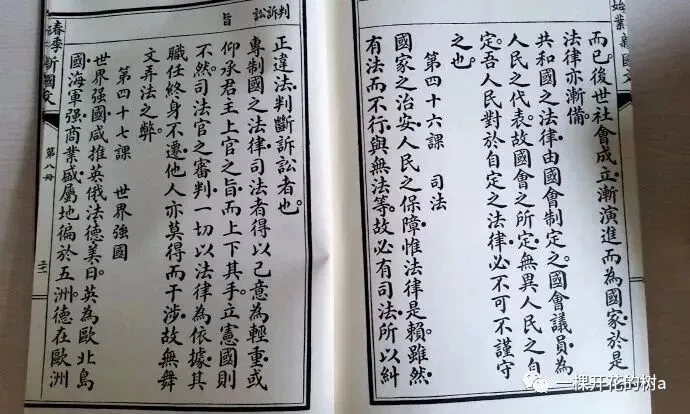 而已。後世社會成立。漸演進而為國家。於是
法律亦漸備。
共和國之法律。由國會制定之。國會議員。為
人民之代表。故國會之所定。無異人民之自
定。吾人民對於自定之法律。必不可不謹守
之也。
第四十六課 司法
國家之治安。人民之保障。惟法律是賴。雖然。
有法而不行。與無法等。故必有司法。所以糾
判訴訟
旨
正違法。判斷訴訟者也。
專制國之法律。司法者得以己意為輕重。或
仰承君主上官之旨。而上下其手。立憲國則
不然。司法官之審判。一切以法律為依據。其
職任終身不遷。他人亦莫得而干涉。故無舞
文弄法之弊。
第四十七課 世界強國
世界强國。咸推英俄法德美日。英為歐北島
國。海軍强。商業盛。屬地徧於五洲。德在歐洲
春季新國文
第八冊
一棵开花的树a